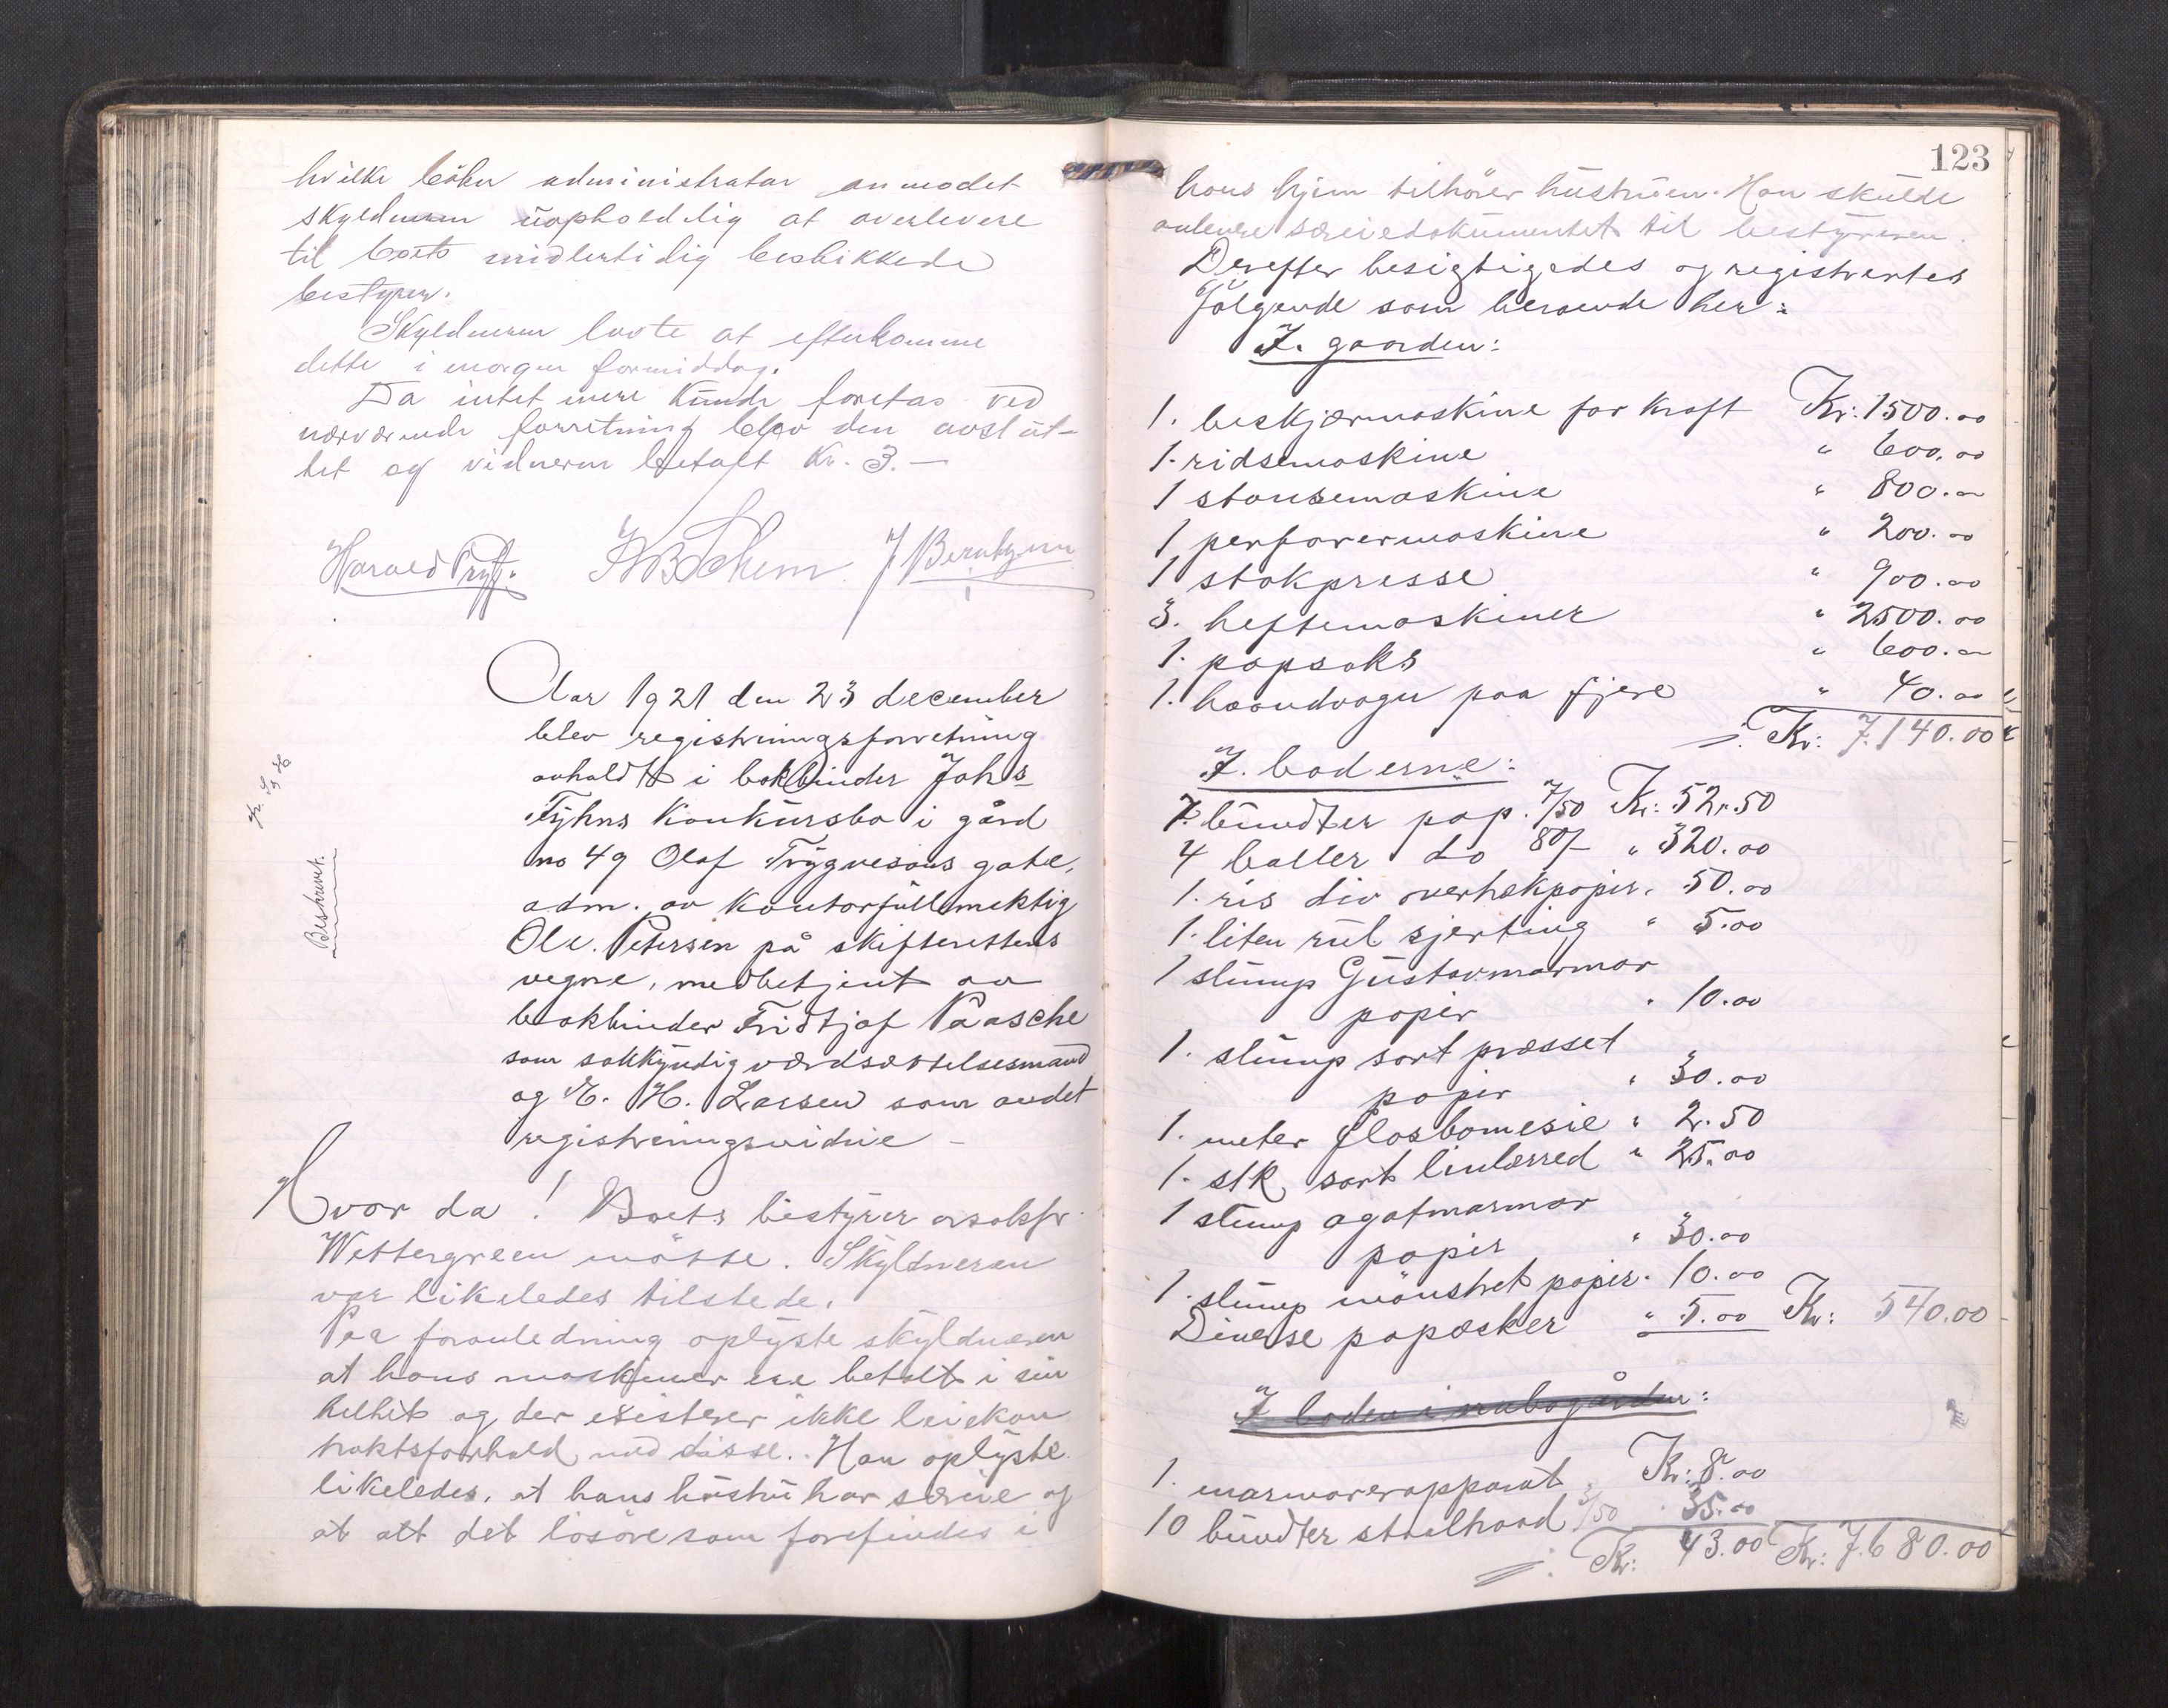 hvilke bøker administrator anmodet
skyldneren uopholdelig at overlevere
til boets midlertidig beskikkede
bestyrer.
Skyldneren lovte at efterkomme
dette i morgen formiddag.
Da intet mere kunde foretas ved
nærværende forretning blev den avslut-
tet og vidnerne betalt Kr. 3.—
Harald
Aar 1921 den 23 december
blev registreringsforretning
avholdt i bokbinder Johs
Tyhns Konkursbo i gård
no 49 Olaf Trygvesøns gate,
adm. av kontorfullmektig
Ole. Petersen på skifterettens
vegne, medbetjent av
bokbinder Fridtjof Paasche
som sakkyndig værdsættelsesmand
og E. H. Larsen som andet
registreringsvidne –
Beskrevet.
Hvor da! Boets bestyrer o.r.sakfr.
Wettergreen møtte. Skyldneren
var likeledes tilstede.
Paa foranledning oplyste skyldneren
at hans maskiner ere betalt i sin
helhet og der existerer ikke leiekon
traktsforhold med disse. Han oplyste
likeledes, at hans hustru har særeie og
at alt det løsøre som forefindes i
123
hans hjem tilhører hustruen. Han skulde
anlevere særeiedokumentet til bestyreren.
Derefter besigtigedes og registrertes
følgende som beroende her:
I. gaarden:
1. beskjærmaskine for kraft Kr: 1500.00
1. ridsemaskine " 600.00
1 stansemaskine " 800.00
1 perforermaskine " 200.00
1 stokpresse " 900.00
3. heftemaskiner " 2500.00
1. papsaks " 600.00
1. haandvogn paa fjere " 40.00
Kr: 7.140.00
I. boderne:
7. bundter pap. 7/50 Kr: 52.50
4 baller do 80/- " 320.00
1. ris div overtrækpapir. 50.00
1. liten rul sjerting " 5.00
1 stump Gustavmarmor
papir " 10.00
1. stump sort presset
papir " 30.00
1. meter glosbomesie " 2.50
1. stk sort linlærred " 25.00
1 stump agatmarmor
papir " 30.00
1. stump mønstret papir. 10.00
Diverse papæsker " 5.00 Kr: 540.00
I boden i nabogården:
1. marmorerapparat Kr: 8.00
10 bundter straatraad 3/50 " 35.00
Kr: 43.00 Kr: 7.680.00